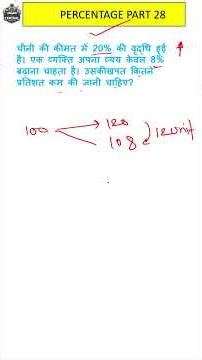 PERCENTAGE PART 28
चीनी की कीमत में 20% की वृद्धि हुई
है। एक व्यक्ति अपना व्यय केवल 8%
बढ़ाना चाहता है। उसकीखपत कितने
प्रतिशत कम की जानी चाहिए?
100 120
108 12unit